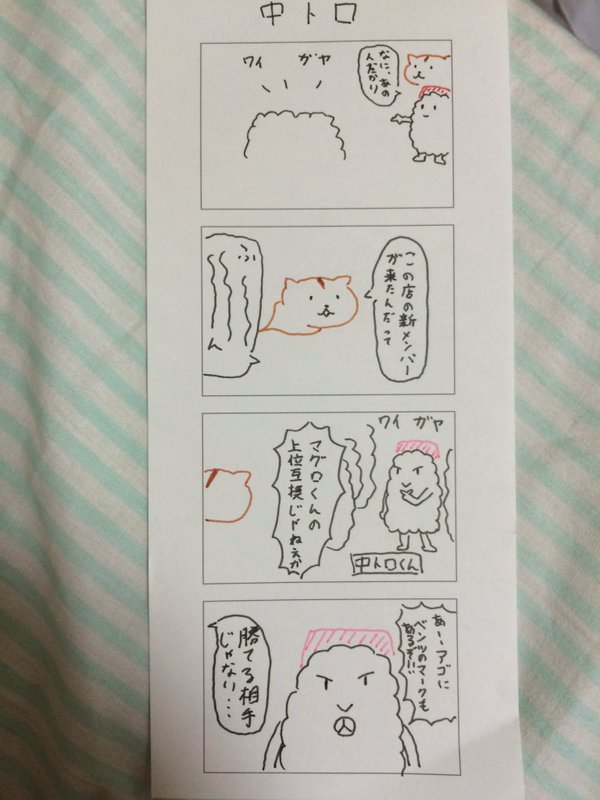 中トロ
なに、あの
人だかり
ワイ ガヤ
この店の新メンバー
が来たんだって
ふ〜〜〜ん
ワイ ガヤ
中トロくん
マグロくんの
上位互換じゃねぇか
アゴに
ベンツのマークも
あるぞ
勝てる相手
じゃない…